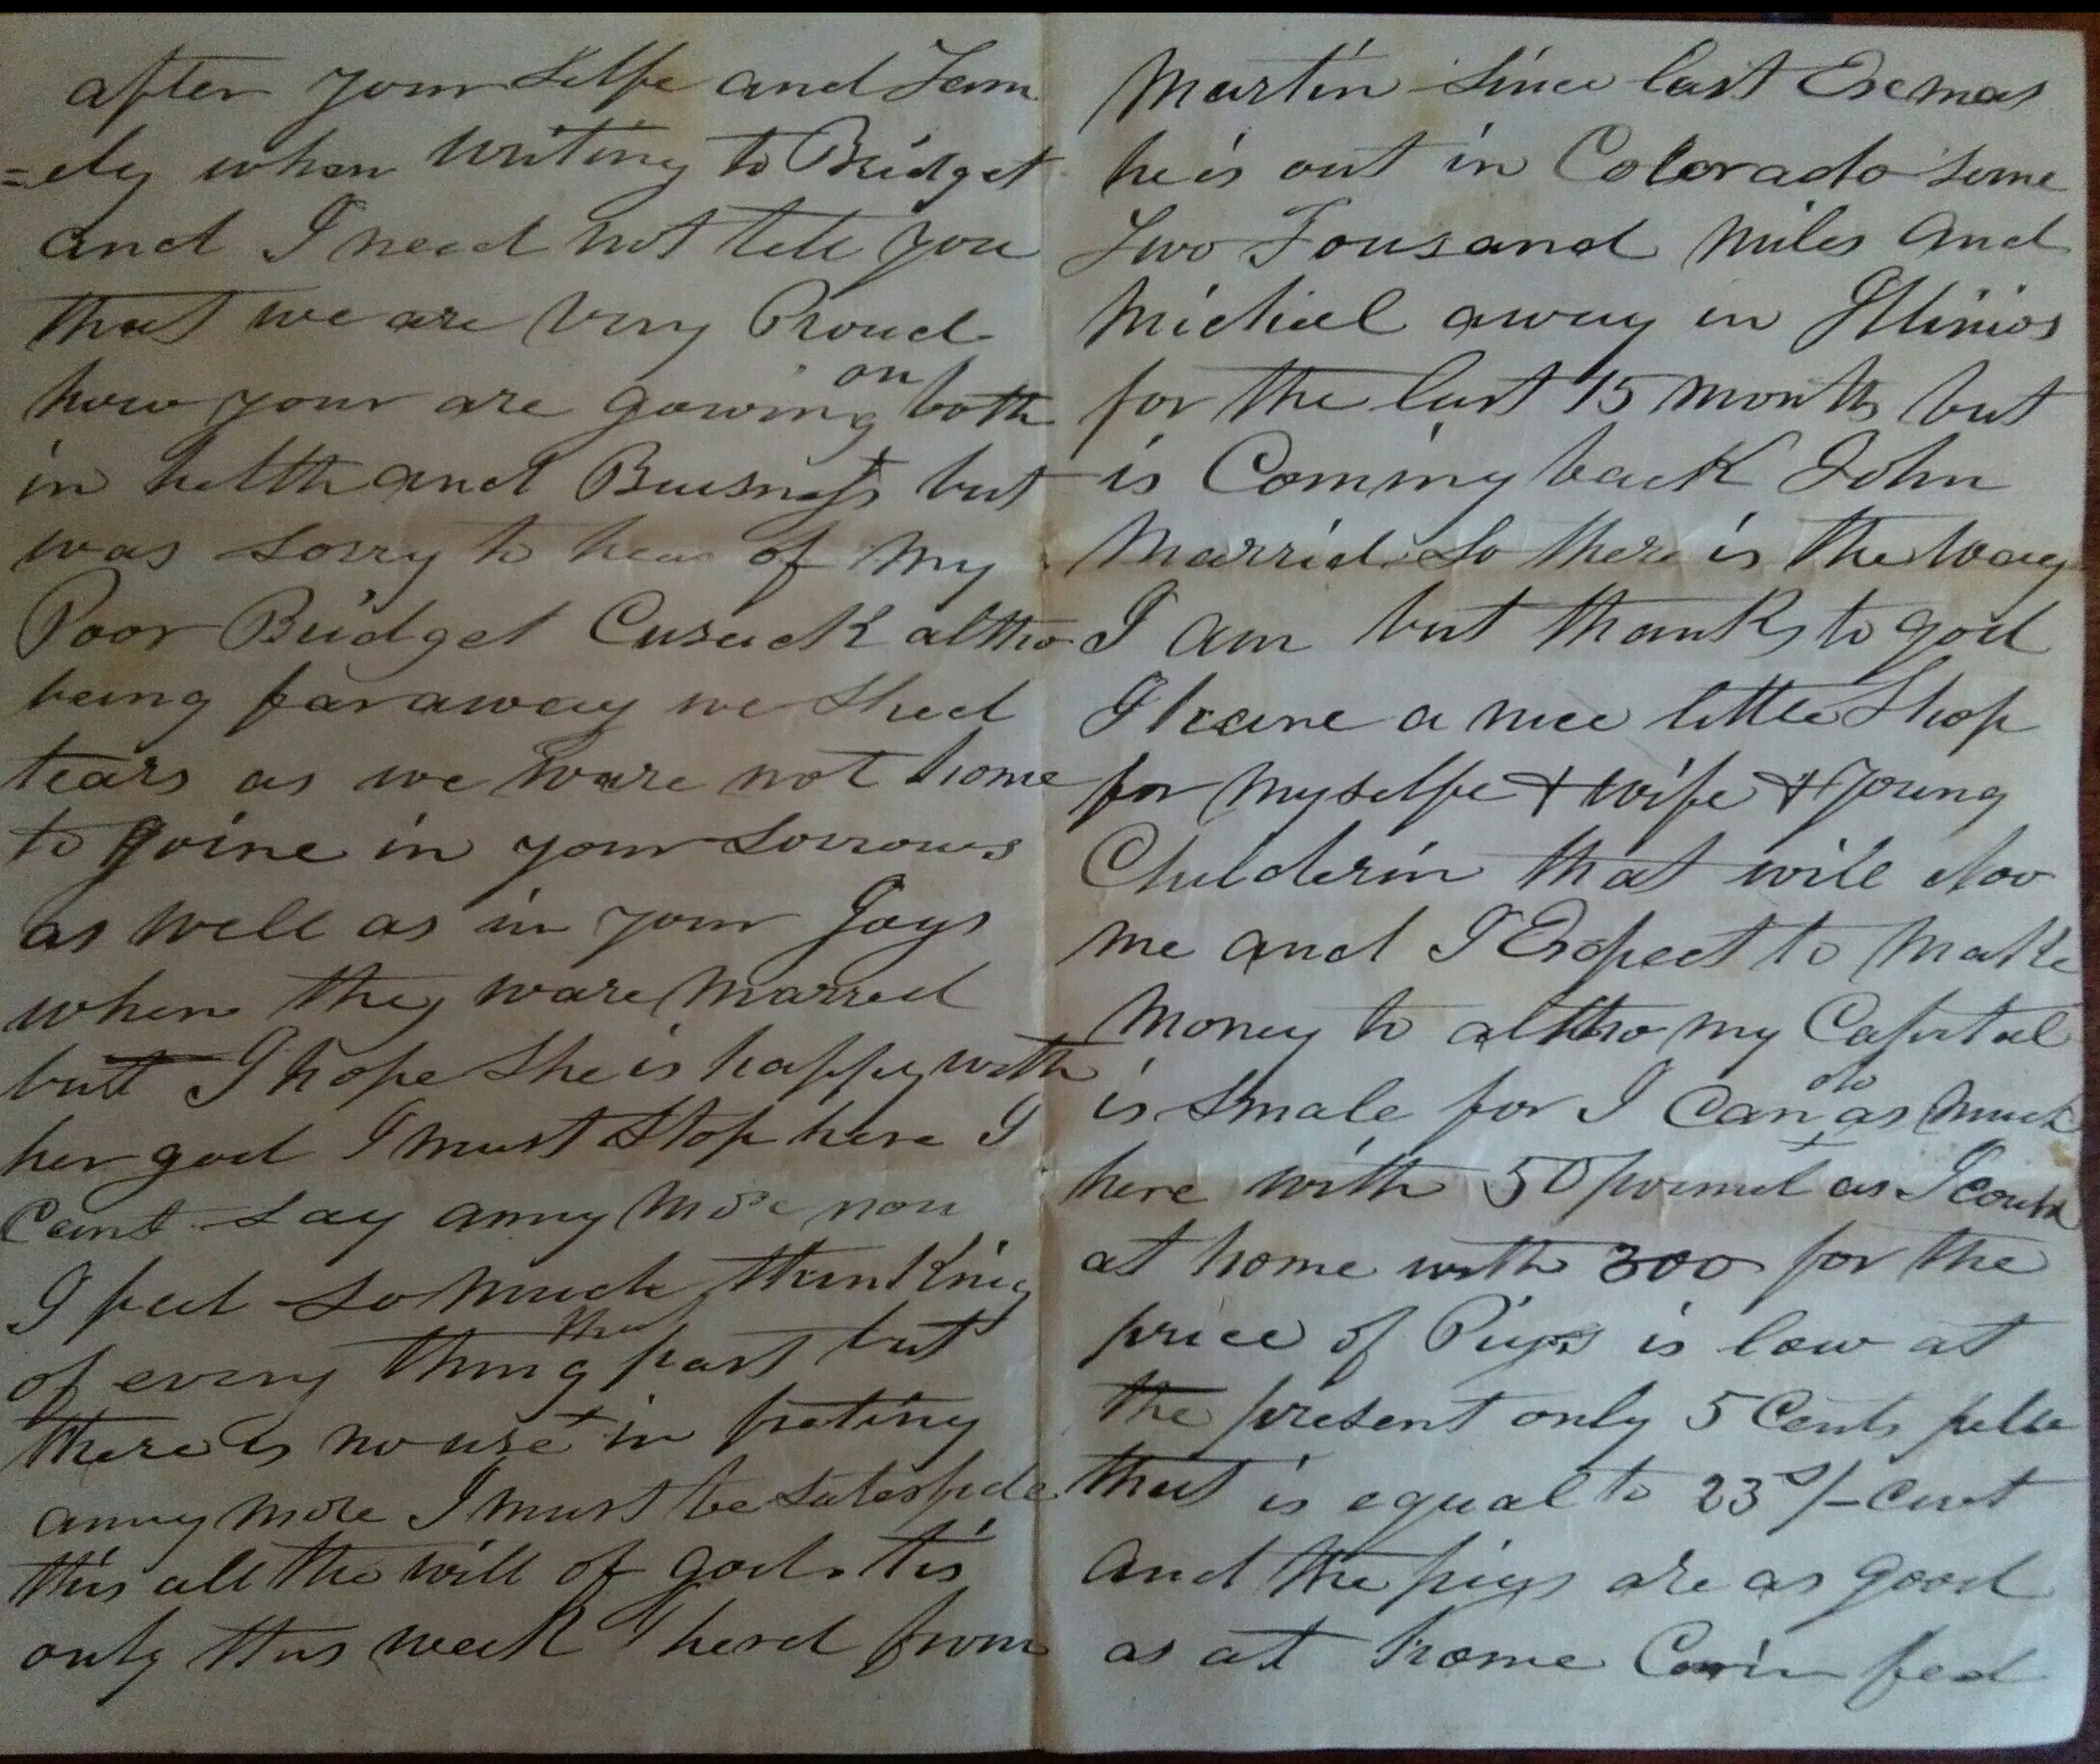 after your Selfe and Fam
=ely when writing to Bridget
and I need not tell you
that we are very Proud
how your are gowing on both
in helth and Buisness but
was sorry to hear of my
Poor Bridget Cusack altho
being far away we Shed
tears as we ware not home
to goine in your Sorrows
as well as in your Joys
when they ware Marred
but I hope She is happy with
her god I must Stop here I
Cant Say anny More now
I feel So Much thinking
of every thing that past but
there is no use in freting
anny more I must be Satesfide
this all the will of god. tis
only this week I herd from
Martin Since last Exsmas
he is out in Colorado Some
Two Tousand Miles and
Michiel away in Illinios
for the last 15 Months but
is Coming back John
Marrid So there is the way
I am but thanks to god
I have a nice little Shop
for Myselfe & wife & Young
Childerin that will doo
me and I Exspect to Make
Money to altho my Capital
is Smale for I Can do as Much
here with 50 pound as I could
at home with 300 for the
price of Pigs is low at
the present only 5 Cents
that is equal to 23s/- Cwt
and the pigs are as good
as at home Corin fed